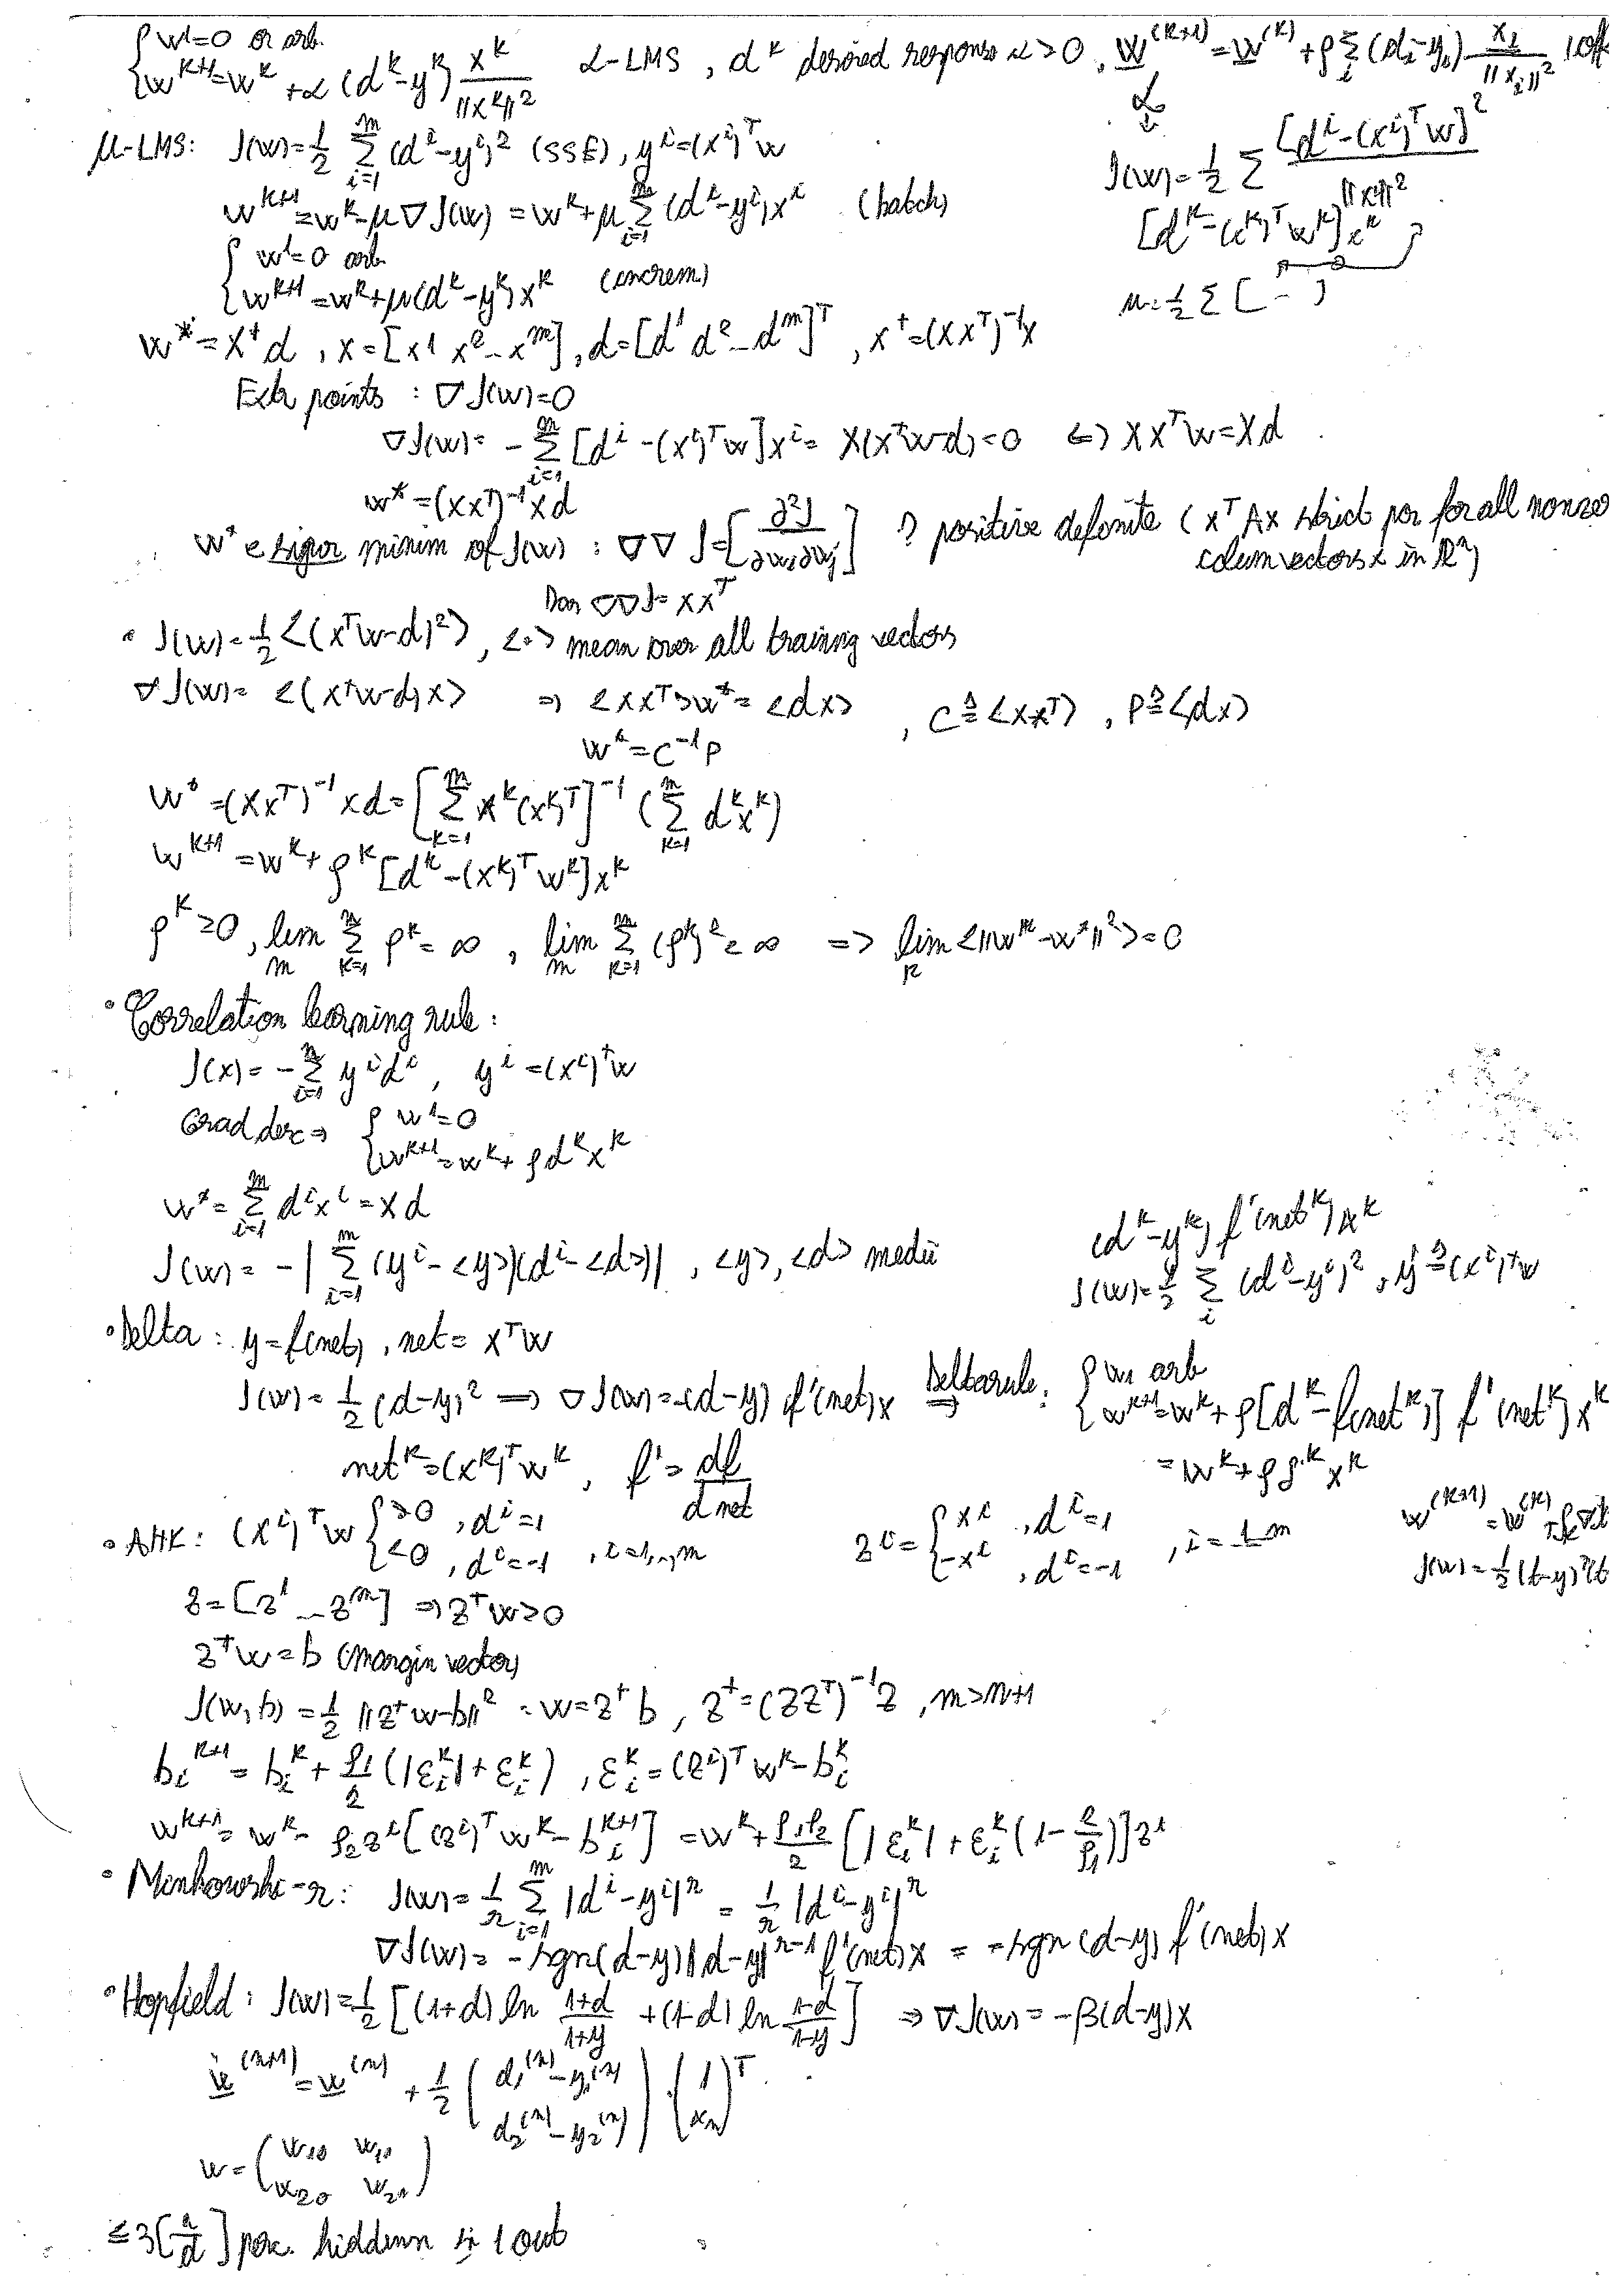 { w¹=0 or arb.
{ w^{k+1}=w^k+α(d^k-y^k) x^k/||x^k||²   α-LMS, d^k desired response α>0, w^{(k+1)}=w^{(k)}+ρ Σ_i (d_i-y_i) x_i/||x_i||²
α ↓
μ-LMS: J(w)=1/2 Σ_{i=1}^m (d^i-y^i)² (SSE), y^i=(x^i)^T w
J(w)=1/2 Σ [d^i-(x^i)^T w]²/||x^i||²
w^{k+1}=w^k-μ∇J(w)=w^k+μ Σ_{i=1}^m (d^i-y^i)x^i (batch)
[d^k-(x^k)^T w^k]x^k
{ w¹=0 arb.
{ w^{k+1}=w^k+μ(d^k-y^k)x^k (increm)
μ=1/2 Σ[ - ]
w*=X†d, X=[x¹ x² ... x^m], d=[d¹ d² ... d^m]^T, X†=(XX^T)^{-1}X
Extr points: ∇J(w)=0
∇J(w)=-Σ_{i=1}^m [d^i-(x^i)^T w]x^i=X(X^T w-d)=0 ⇔ XX^T w=Xd
w*=(XX^T)^{-1}Xd
w* e sigur minim of J(w): ∇∇J=[∂²J/∂w_i∂w_j] ? positive definite (x^T Ax strict poz for all nonzero
column vectors x in R^n)
Dar ∇∇J=XX^T
• J(w)=1/2 <(x^T w-d)²>, <·> mean over all training vectors
∇J(w)=<(x^T w-d)x> ⇒ <xx^T>w*=<dx>, C≜<xx^T>, P≜<dx>
w*=C^{-1}P
w*=(XX^T)^{-1}Xd=[Σ_{k=1}^m x^k(x^k)^T]^{-1} (Σ_{k=1}^m d^k x^k)
w^{k+1}=w^k+ρ^k[d^k-(x^k)^T w^k]x^k
ρ^k≥0, lim_m Σ_{k=1}^m ρ^k=∞, lim_m Σ_{k=1}^m (ρ^k)²<∞ => lim_k <||w^k-w*||²>=0
• Correlation learning rule:
J(x)=-Σ_{i=1}^m y^i d^i, y^i=(x^i)^T w
Grad.desc ⇒ { w¹=0
{ w^{k+1}=w^k+ρd^k x^k
w*=Σ_{i=1}^m d^i x^i=Xd
(d^k-y^k) f'(net^k)x^k
J(w)=-|Σ_{i=1}^m (y^i-<y>)(d^i-<d>)|, <y>, <d> medii
J(w)=1/2 Σ_i (d^i-y^i)², y^i≜(x^i)^T w
• Delta: y=f(net), net=x^T w
J(w)=1/2 (d-y)² ⇒ ∇J(w)=-(d-y) f'(net)x ⇒ Delta rule: { w¹ arb
{ w^{k+1}=w^k+ρ[d^k-f(net^k)] f'(net^k)x^k
net^k=(x^k)^T w^k, f'=df/d net
=w^k+ρδ^k x^k
• AHK: (x^i)^T w { >0, d^i=1
{ <0, d^i=-1, i=1,..,m
z^i={ x^i, d^i=1
{ -x^i, d^i=-1, i=1..m
J(w)=1/2(t-y)²
z=[z¹ ... z^m] ⇒ z^T w>0
z^T w=b (margin vector)
J(w,b)=1/2 ||z^T w-b||² : w=z†b, z†=(ZZ^T)^{-1}Z, m>n+1
b_i^{k+1}=b_i^k+ρ₁/2 (|ε_i^k|+ε_i^k), ε_i^k=(z^i)^T w^k-b_i^k
w^{k+1}=w^k-ρ₂z^i[(z^i)^T w^k-b_i^{k+1}]=w^k+ρ₁ρ₂/2 [|ε_i^k|+ε_i^k(1-2/ρ₁)]z^i
• Minkowski-r: J(w)=1/r Σ_{i=1}^m |d^i-y^i|^r = 1/r |d^i-y^i|^r
∇J(w)=-sgn(d-y)|d-y|^{r-1} f'(net)x = -sgn(d-y) f'(net)x
• Hopfield: J(w)=1/2 [(1+d) ln (1+d)/(1+y) +(1-d) ln (1-d)/(1-y)] ⇒ ∇J(w)=-β(d-y)x
w^{(n+1)}=w^{(n)}+1/2 ( d₁^{(n)}-y₁^{(n)} ; d₂^{(n)}-y₂^{(n)} )·( 1 ; x_n )^T
w=( w₁₀ w₁₁ ; w₂₀ w₂₁ )
≤3[n/d] per. hidden si 1 out